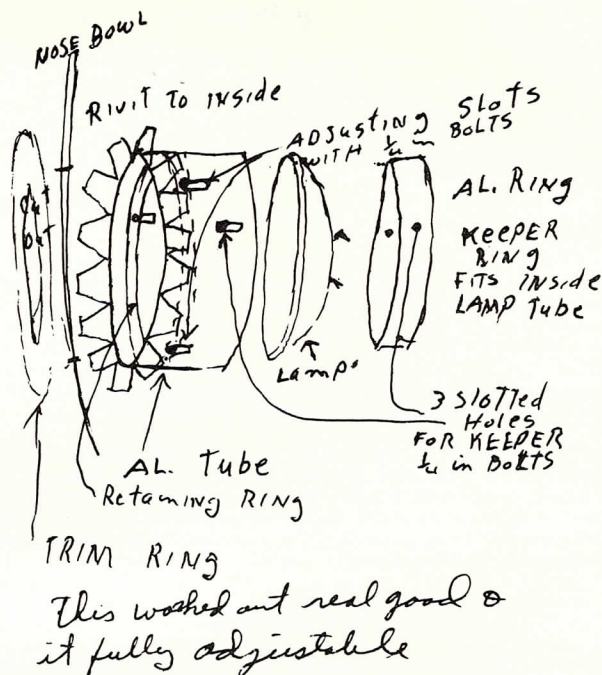 NOSE BOWL
RIVIT TO INSIDE
ADJUSTING SLOTS
WITH 1/4 in BOLTS
Cut
Out
AL. RING
KEEPER
RING
FITS INSIDE
LAMP TUBE
Lamp
3 Slotted
Holes
FOR KEEPER
1/4 in BOLTS
AL. Tube
Retaining RING
TRIM RING
This worked out real good &
it fully adjustable